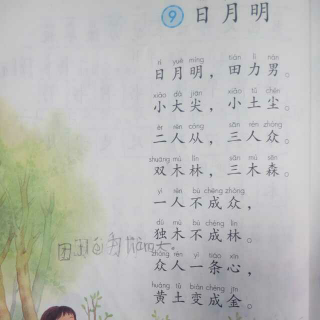 9 日月明
rì yuè míng tián lì nán
日月明，田力男。
xiǎo dà jiān xiǎo tǔ chén
小大尖，小土尘。
èr rén cóng sān rén zhòng
二人从，三人众。
shuāng mù lín sān mù sēn
双木林，三木森。
yì rén bù chéng zhòng
一人不成众，
dú mù bù chéng lín
独木不成林。
zhòng rén yì tiáo xīn
众人一条心，
huáng tǔ biàn chéng jīn
黄土变成金。